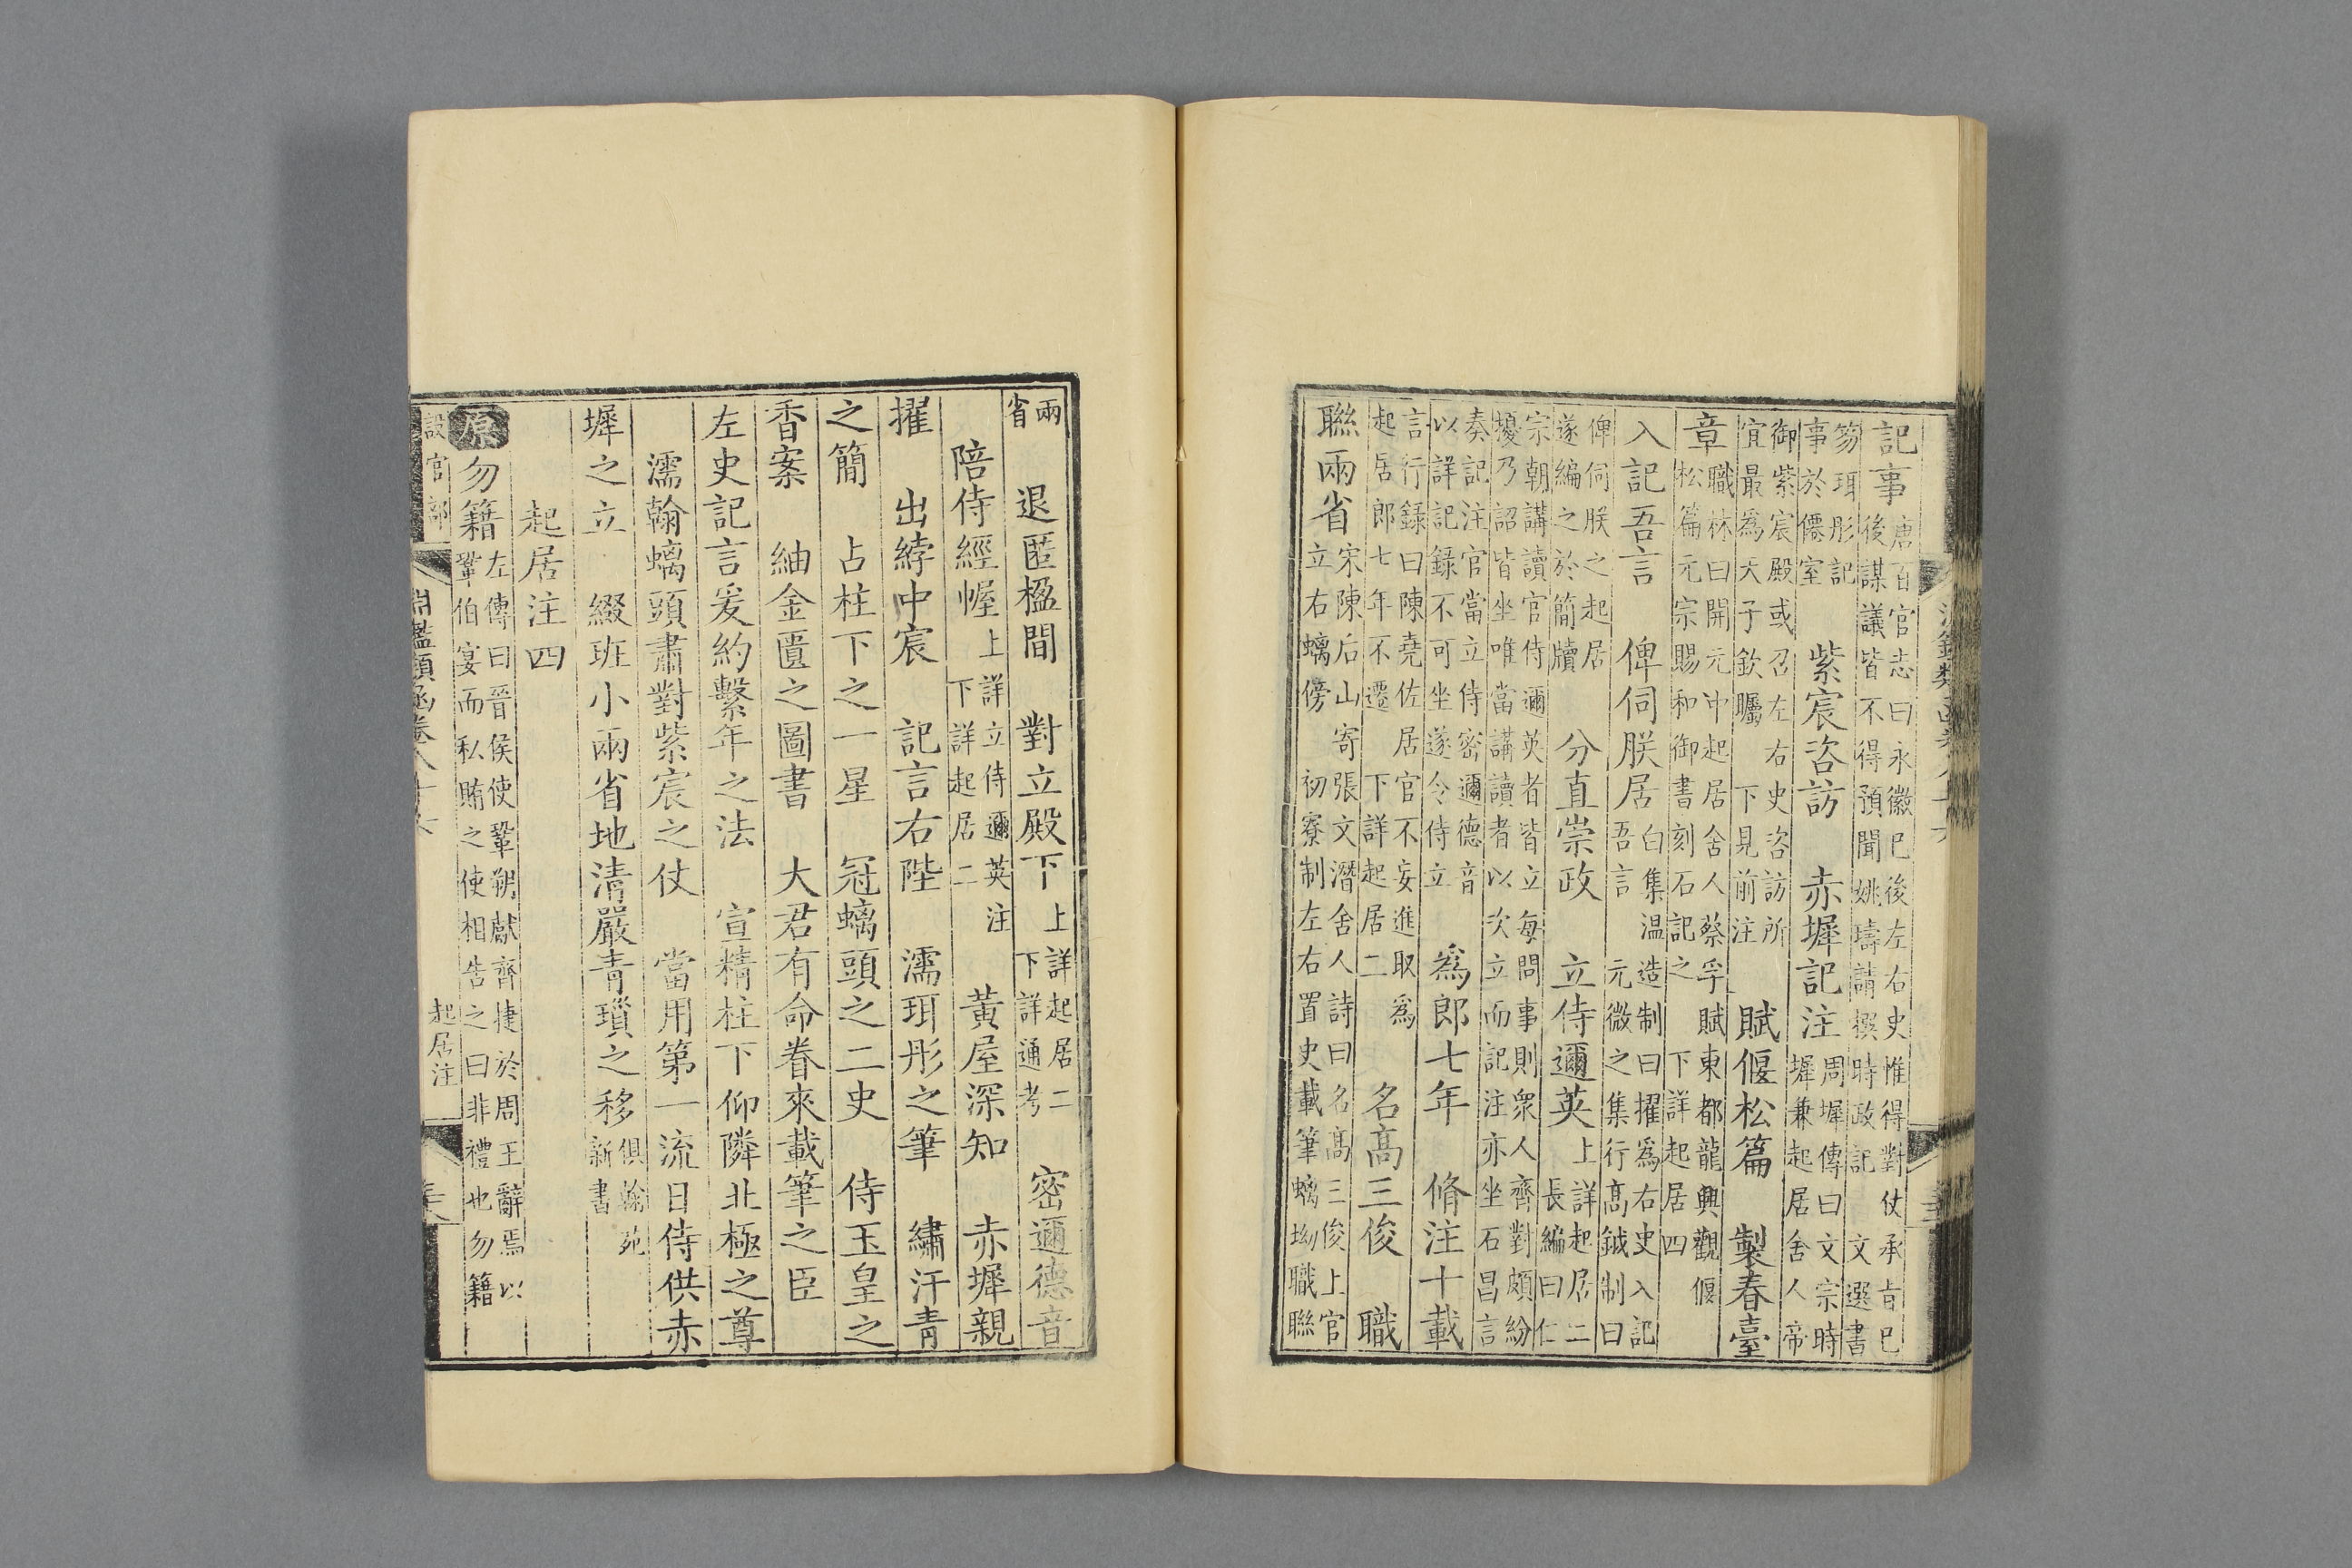 記事唐百官志曰永徽已後左右史惟得對仗承旨已
後謀議皆不得預聞姚璹請撰時政記 文選書
笏珥彤記
事於僊室 紫宸咨訪 赤墀記注周墀傳曰文宗時
墀兼起居舍人帝
御紫宸殿或召左右史咨訪所
宜最爲天子欽矚 下見前注 賦偃松篇 製春臺
章職林曰開元中起居舍人蔡孚賦東都龍興觀偃
松篇元宗賜和御書刻石記之 下詳起居四
入記吾言 俾伺朕居白集温造制曰擢爲右史入記
吾言 元微之集行髙鉞制曰
俾伺朕之起居
遂編之於簡牘 分直崇政 立侍邇英上詳起居二
長編曰仁
宗朝講讀官侍邇英者皆立每問事則衆人齊對頗紛
擾乃詔皆坐唯當講讀者以次立而記注亦坐石昌言
奏記注官當立侍密邇德音
以詳記録不可坐遂令侍立 爲郎七年 脩注十載
言行録曰陳堯佐居官不妄進取爲
起居郎七年不遷 下詳起居二 名高三俊 職
聯兩省宋陳后山寄張文潛舍人詩曰名髙三俊上官
立右螭傍 初寮制左右置史載筆螭坳職聯
兩
省 退匿楹間 對立殿下上詳起居二
下詳通考 密邇德音
陪侍經幄上詳立侍邇英注
下詳起居二 黃屋深知 赤墀親
擢 出綍中宸 記言右陛 濡珥彤之筆 繡汗青
之簡 占柱下之一星 冠螭頭之二史 侍玉皇之
香案 紬金匱之圖書 大君有命眷來載筆之臣
左史記言爰約繫年之法 宣精柱下仰隣北極之尊
濡翰螭頭肅對紫宸之仗 當用第一流日侍供赤
墀之立 綴班小兩省地清嚴青瑣之移俱翰苑
新書
起居注四
原 勿籍左傳曰晉侯使鞏朔獻齊捷於周王辭焉以
鞏伯宴而私賄之使相告之曰非禮也勿籍
設官部 淵鑑類函卷八十六 起居注